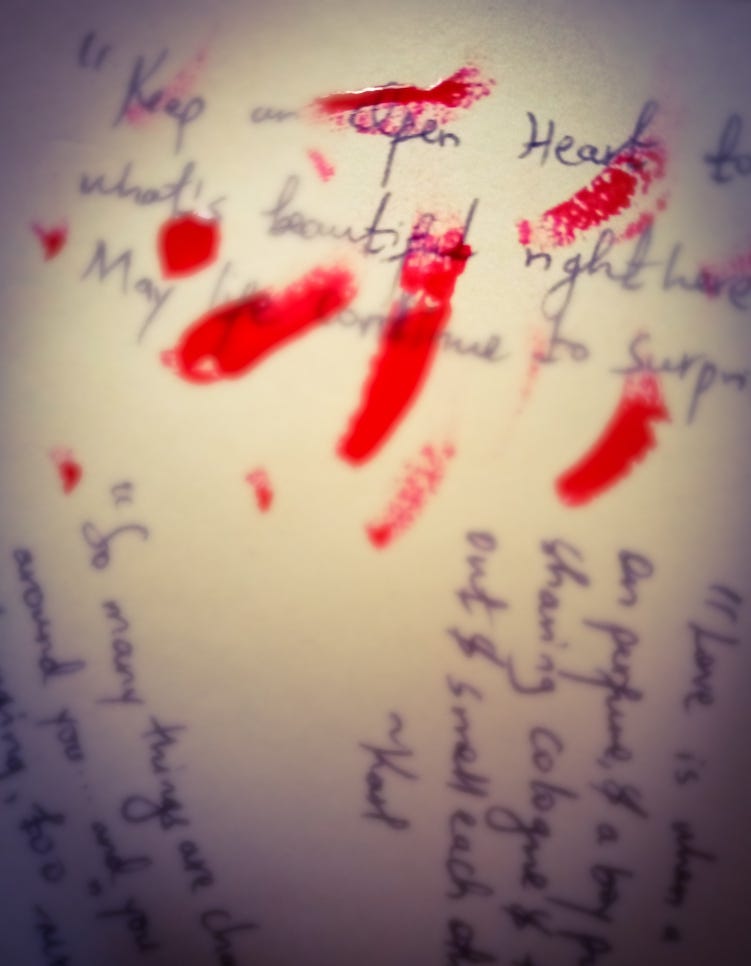 "Keep an Open Heart to
what's beautiful right here
May life continue to Surpri
"Love is when a
on perfume, & a boy p
shaving cologne &
out & smell each oth
~Karl
"So many things are cha
around you... and you
too